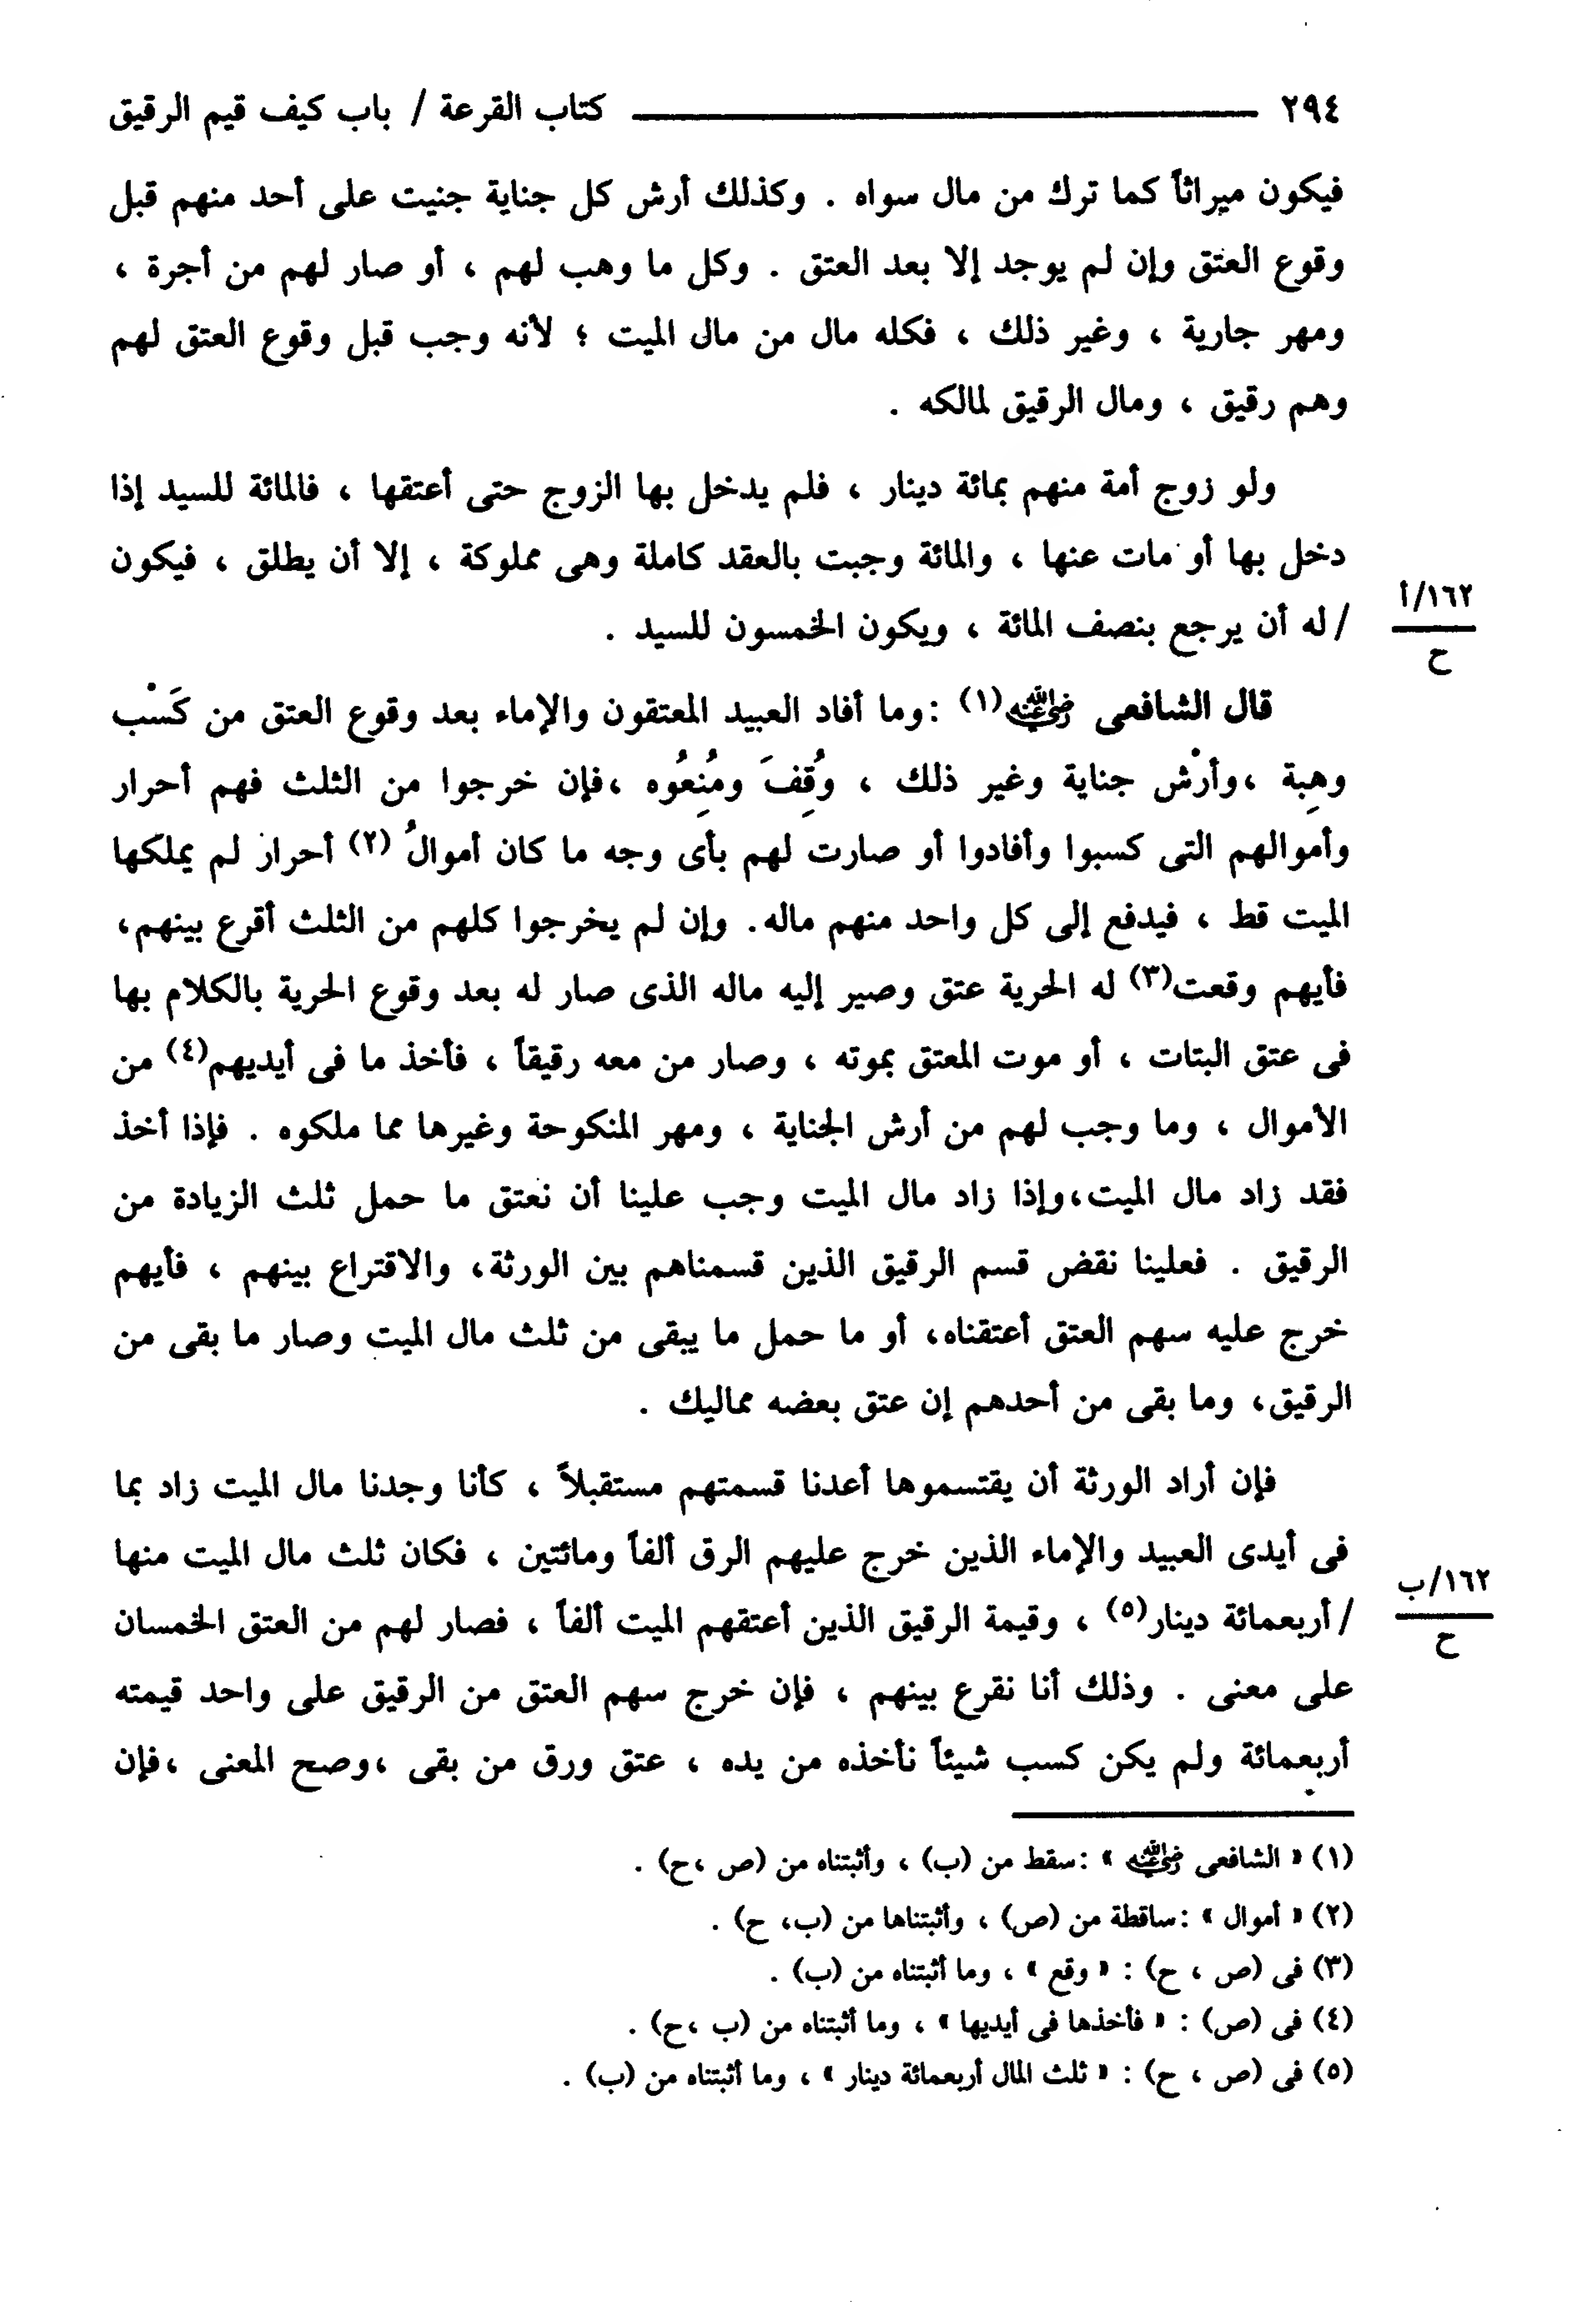 ٢٩٤ كتاب القرعة / باب كيف قيم الرقيق
فيكون ميراثاً كما ترك من مال سواه . وكذلك أرش كل جناية جنيت على أحد منهم قبل
وقوع العتق وإن لم يوجد إلا بعد العتق . وكل ما وهب لهم ، أو صار لهم من أجرة ،
ومهر جارية ، وغير ذلك ، فكله مال من مال الميت ؛ لأنه وجب قبل وقوع العتق لهم
وهم رقيق ، ومال الرقيق لمالكه .
ولو زوج أمة منهم بمائة دينار ، فلم يدخل بها الزوج حتى أعتقها ، فالمائة للسيد إذا
دخل بها أو مات عنها ، والمائة وجبت بالعقد كاملة وهى مملوكة ، إلا أن يطلق ، فيكون
١٦٢/أ
ح
/ له أن يرجع بنصف المائة ، ويكون الخمسون للسيد .
قال الشافعى رضي الله عنه (١) : وما أفاد العبيد المعتقون والإماء بعد وقوع العتق من كَسْب
وهِبة ، وأرْش جناية وغير ذلك ، وُقِفَ ومُنِعُوه ، فإن خرجوا من الثلث فهم أحرار
وأموالهم التى كسبوا وأفادوا أو صارت لهم بأى وجه ما كان أموالُ (٢) أحرار لم يملكها
الميت قط ، فيدفع إلى كل واحد منهم ماله. وإن لم يخرجوا كلهم من الثلث أقرع بينهم،
فأيهم وقعت(٣) له الحرية عتق وصير إليه ماله الذى صار له بعد وقوع الحرية بالكلام بها
فى عتق البتات ، أو موت المعتق بموته ، وصار من معه رقيقاً ، فأخذ ما فى أيديهم(٤) من
الأموال ، وما وجب لهم من أرش الجناية ، ومهر المنكوحة وغيرها مما ملكوه . فإذا أخذ
فقد زاد مال الميت،وإذا زاد مال الميت وجب علينا أن نعتق ما حمل ثلث الزيادة من
الرقيق . فعلينا نقض قسم الرقيق الذين قسمناهم بين الورثة، والاقتراع بينهم ، فأيهم
خرج عليه سهم العتق أعتقناه، أو ما حمل ما يبقى من ثلث مال الميت وصار ما بقى من
الرقيق، وما بقى من أحدهم إن عتق بعضه مماليك .
فإن أراد الورثة أن يقتسموها أعدنا قسمتهم مستقبلاً ، كأنا وجدنا مال الميت زاد بما
فى أيدى العبيد والإماء الذين خرج عليهم الرق ألفاً ومائتين ، فكان ثلث مال الميت منها
١٦٢/ب
ح
/ أربعمائة دينار(٥) ، وقيمة الرقيق الذين أعتقهم الميت ألفاً ، فصار لهم من العتق الخمسان
على معنى . وذلك أنا نقرع بينهم ، فإن خرج سهم العتق من الرقيق على واحد قيمته
أربعمائة ولم يكن كسب شيئاً نأخذه من يده ، عتق ورق من بقى ،وصح المعنى ،فإن
(١) « الشافعى رضي الله عنه » : سقط من (ب) ، وأثبتناه من (ص ،ح) .
(٢) « أموال » : ساقطة من (ص) ، وأثبتناها من (ب، ح) .
(٣) فى (ص ، ح) : « وقع » ، وما أثبتناه من (ب) .
(٤) فى (ص) : « فأخذها فى أيديها » ، وما أثبتناه من (ب ،ح) .
(٥) فى (ص ، ح) : « ثلث المال أربعمائة دينار » ، وما أثبتناه من (ب) .